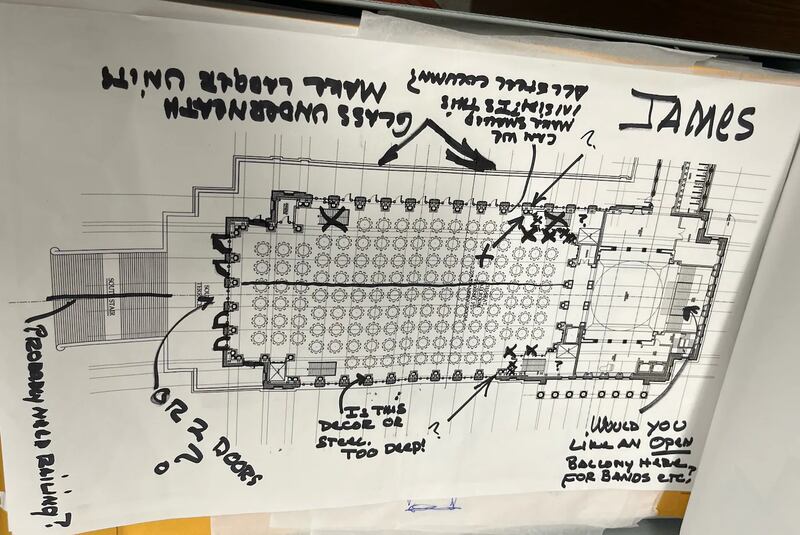 JAMES
GLASS UNDERNEATH
MAKE LARGER UNITS
CAN WE
MAKE SMALLER
IS THIS
ALL STEEL COLUMN?
?
?
?
SOUTH STAIR
PROBABLY NEED RAILING?
OR 2 DOORS
?
IS THIS
DECOR OR
STEEL.
TOO DEEP!
?
WOULD YOU
LIKE AN OPEN
BALCONY HERE
FOR BANDS ETC?